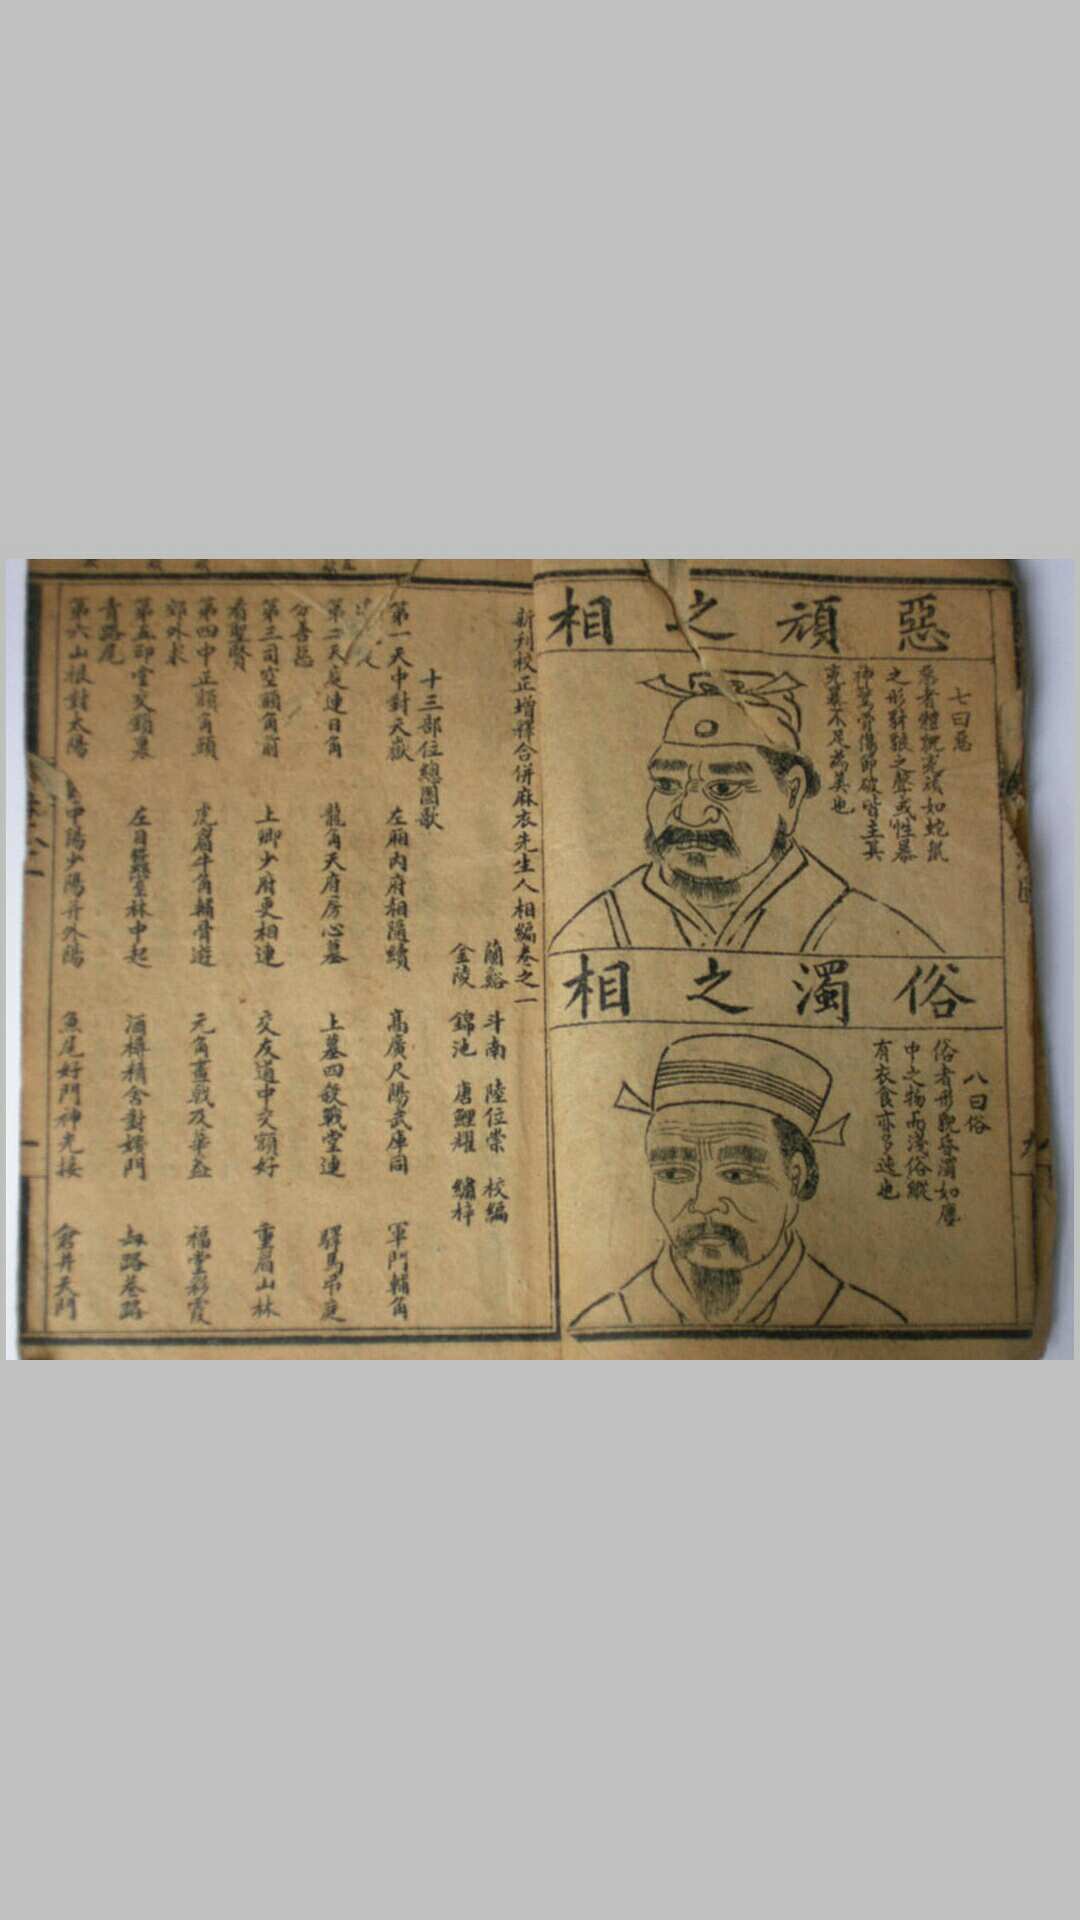 惡頑之相
七曰惡
惡者體貌兇頑如蛇鼠
之形豺狼之聲或性暴
神驚骨傷節破皆主其
兇暴不足為美也
俗濁之相
八曰俗
俗者形貌昏濁如塵
中之物而淺俗縱
有衣食亦多迍也
新刋校正增釋合併麻衣先生人相編卷之一
蘭谿 斗南 陸位崇 校編
金陵 錦池 唐鯉耀 繡梓
十三部位總圖歌
第一天中對天嶽 左廂內府相隨續 高廣尺陽武庫同 軍門輔角
第二天庭連日角 龍角天府房心墓 上墓四殺戰堂連 驛馬吊庭
分善惡
第三司空額角前 上卿少府更相連 交友道中交額好 重眉山林
看聖賢
第四中正額角頭 虎眉牛角輔骨遊 元角畫戟及華蓋 福堂彩霞
郊外求
第五印堂交鎖裏 左目蠶室林中起 酒樽精舍對嬪門 刼路巷路
青路尾
第六山根對太陽 中陽少陽并外陽 魚尾奸門神光接 倉井天門